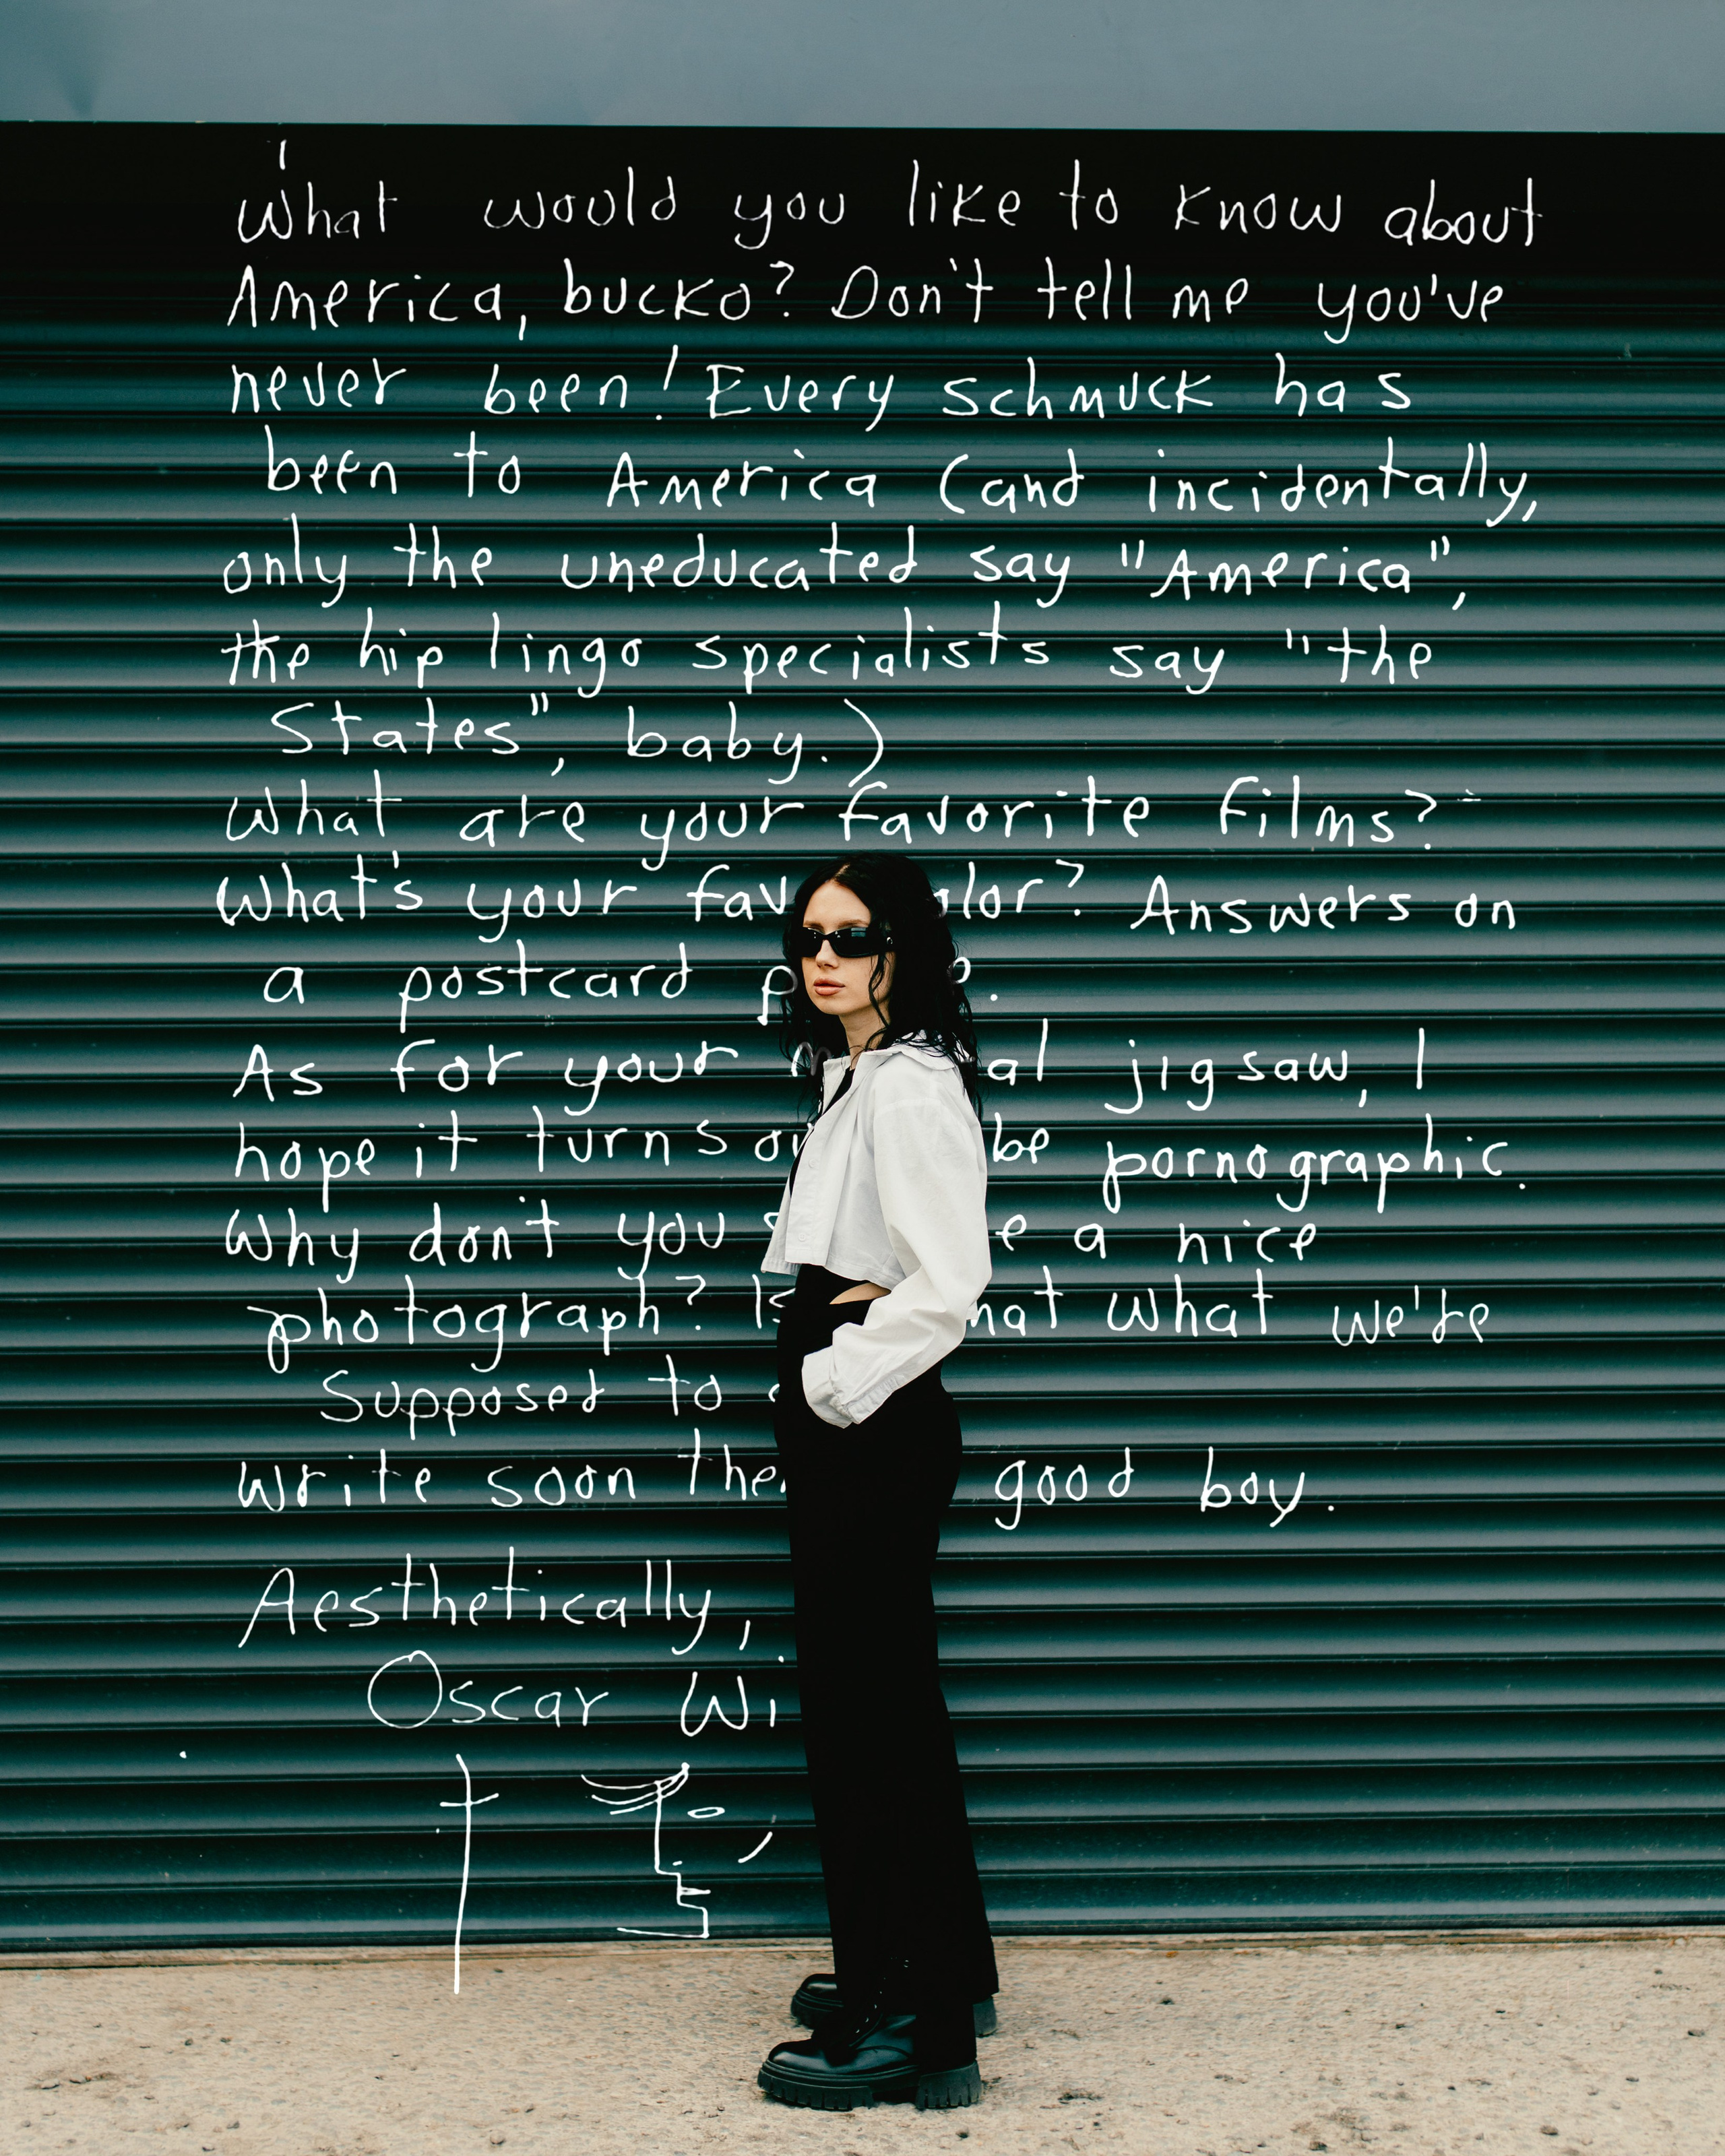 What would you like to know about
America, bucko? Don't tell me you've
never been! Every schmuck has
been to America (and incidentally,
only the uneducated say "America",
the hip lingo specialists say "the
States", baby.)
What are your favorite films?
What's your Answers on
a postcard
As for your jigsaw, I
hope it turns be pornographic.
Why don't you a nice
photograph? what we're
Supposed to
write soon good boy.
Aesthetically,
Oscar